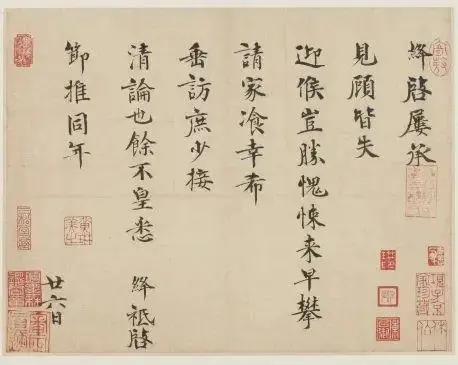 絳啓屢承
見顧皆失
迎候豈勝愧悚来早攀
請家飡幸希
垂訪庶少接
清論也餘不皇悉 絳祗啓
節推同年
廿六日